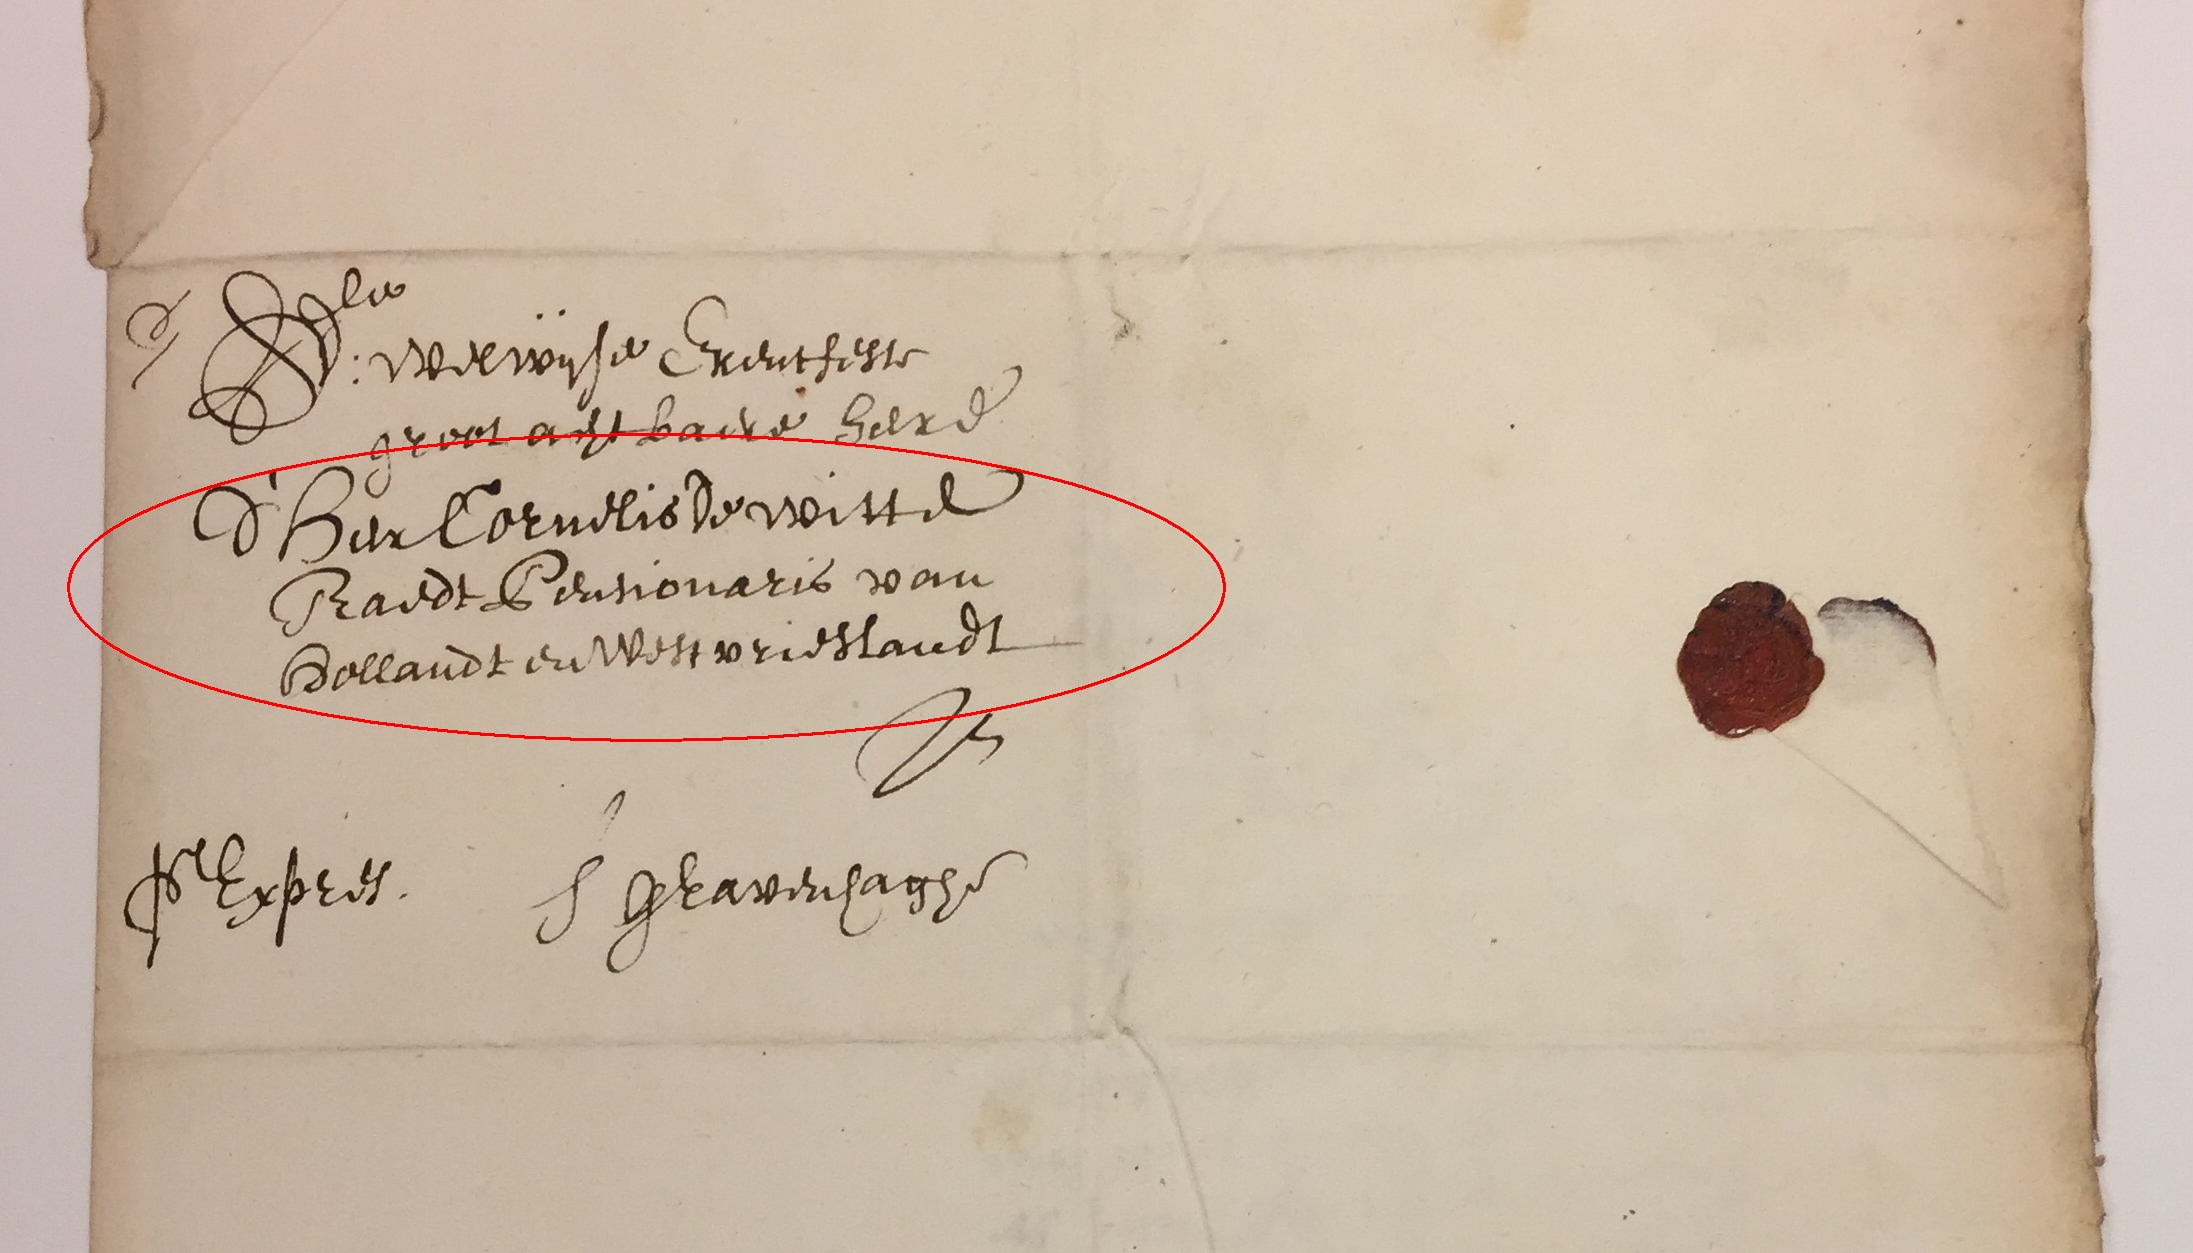 Edle
: Welwijse Erentfeste
groot achtbaere Heere
D' Heer Cornelis de Witte
Raedt Pensionaris van
Hollandt en Westvrieslandt
pr Expres.
s Gravenhaghe